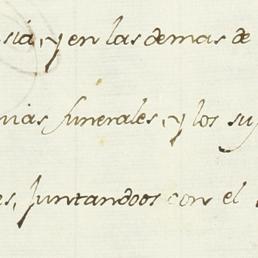 sia, y en las demas de
nias funerales, y los su
es, juntandoos con el